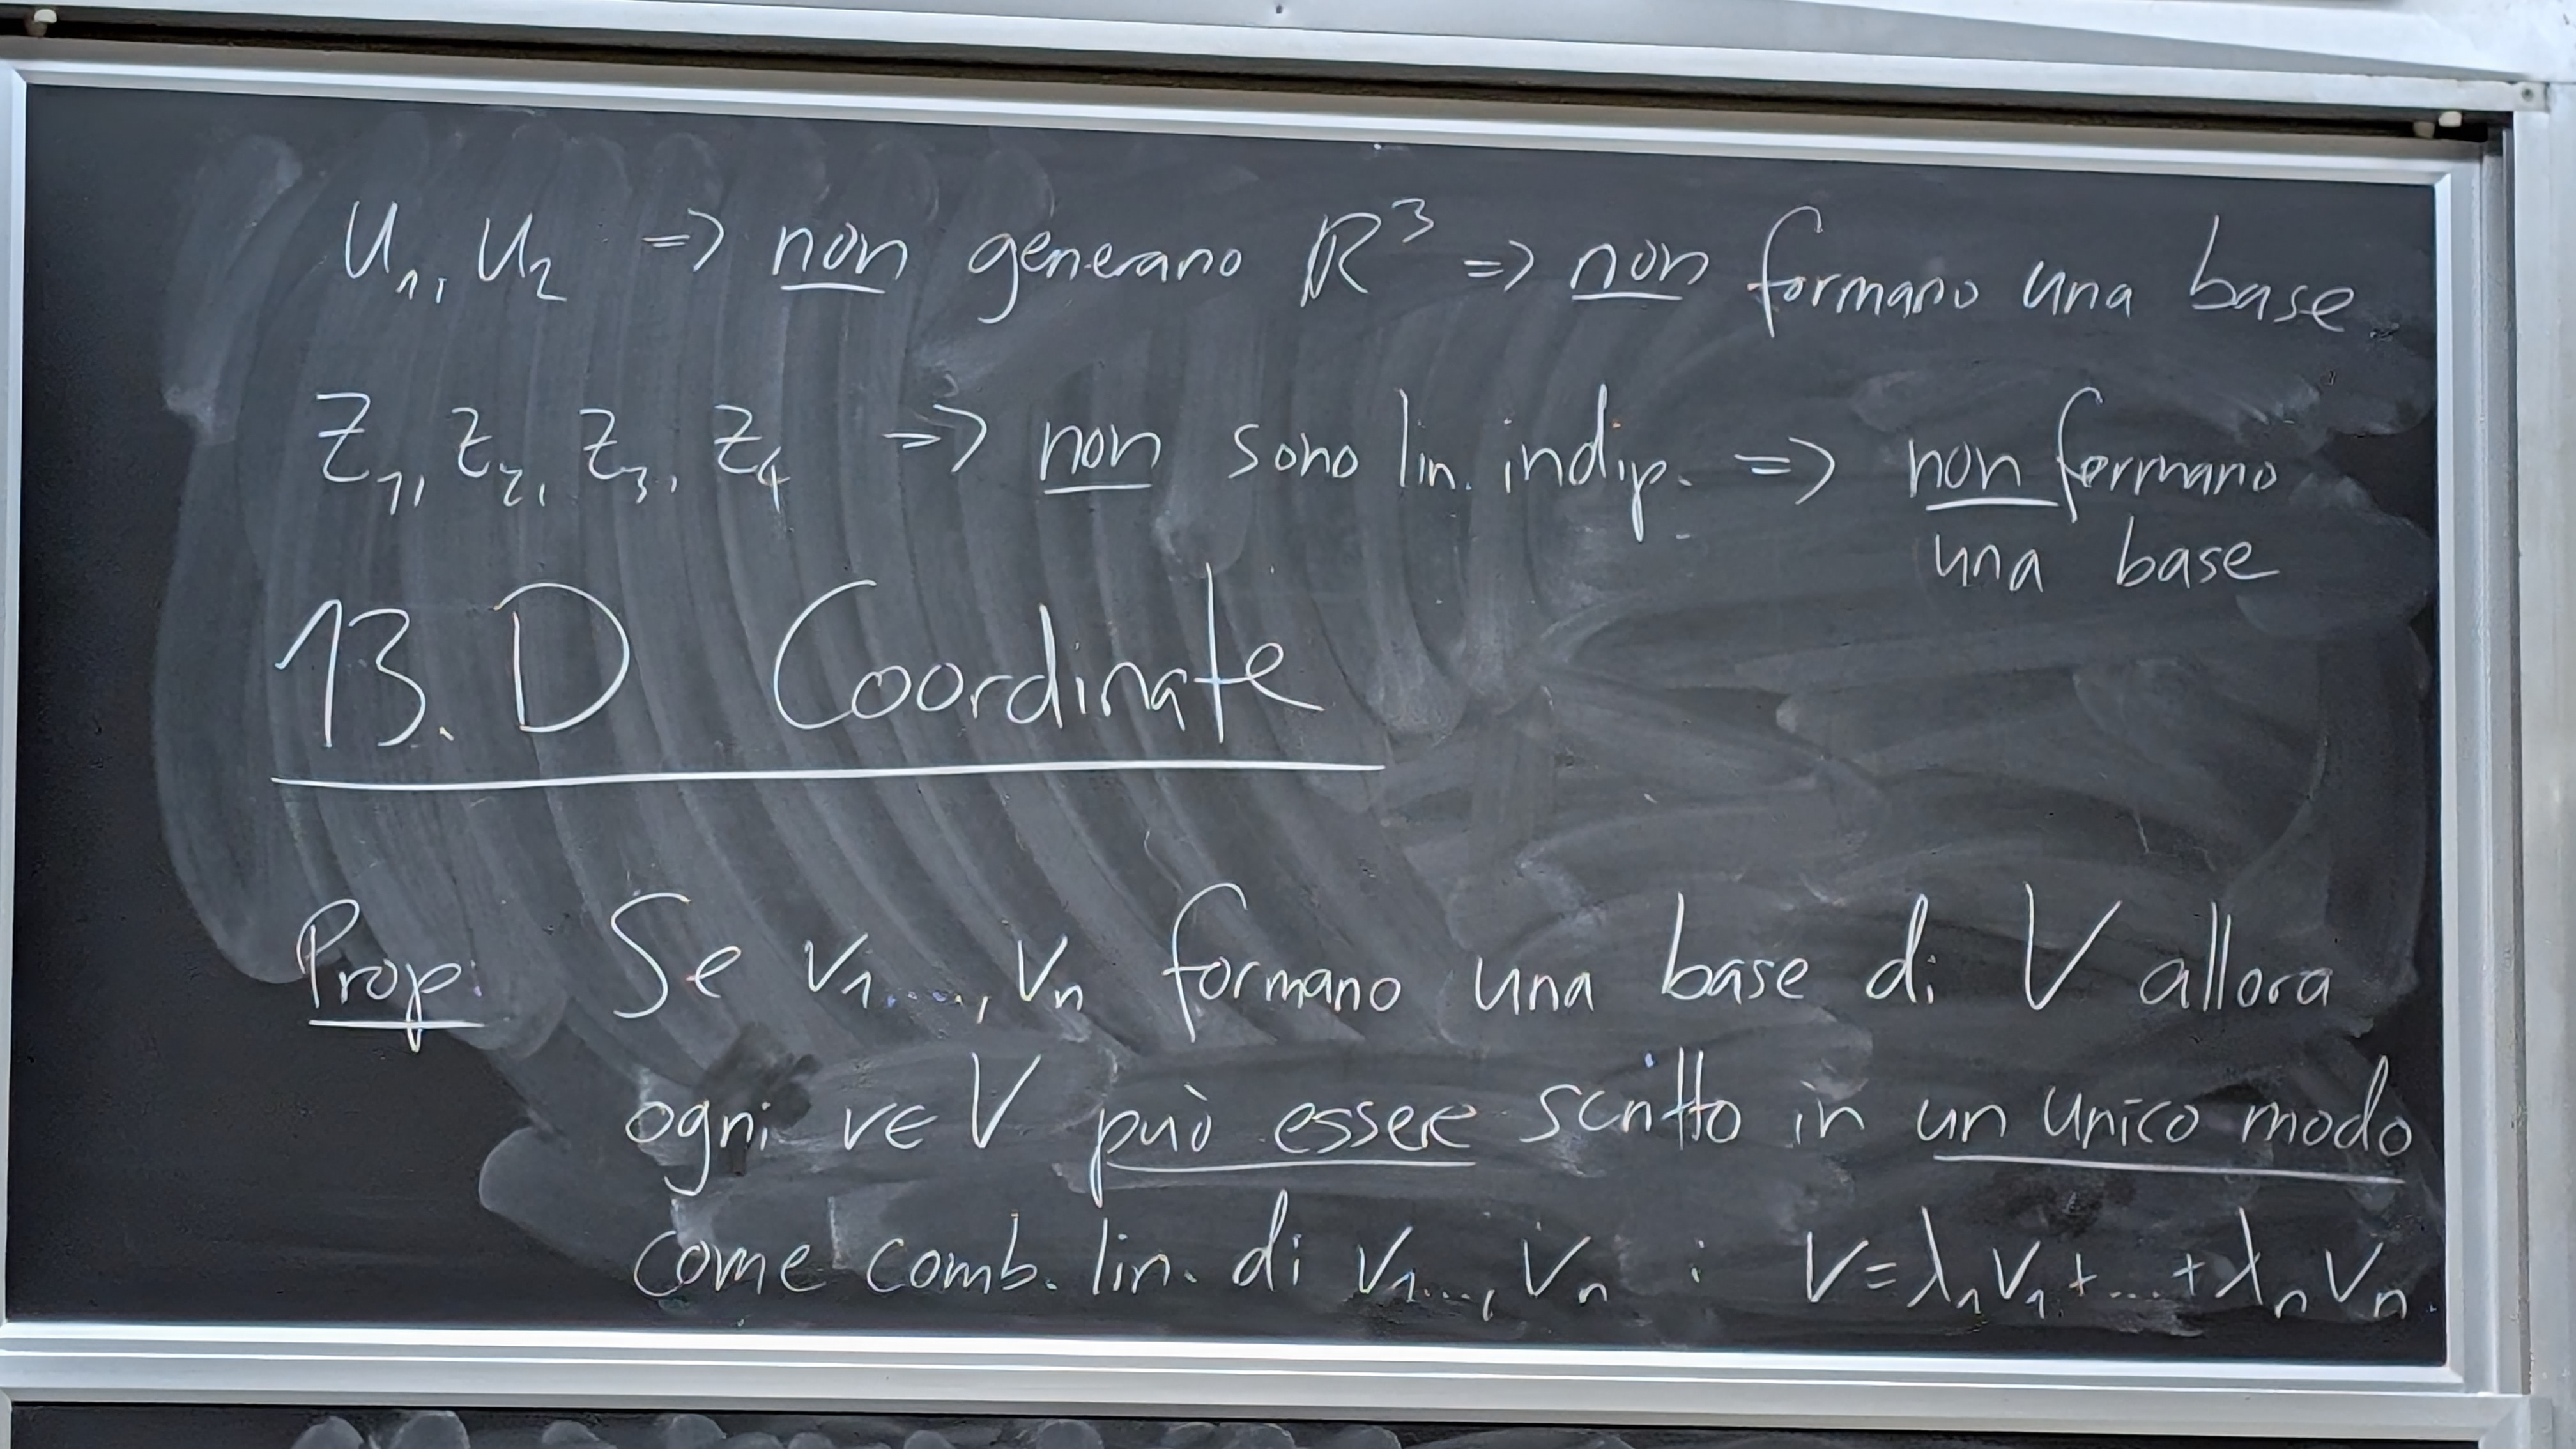 u₁, u₂ => non generano ℝ³ => non formano una base
z₁, z₂, z₃, z₄ => non sono lin. indip. => non formano
una base
13. D Coordinate
Prop: Se v₁..., vₙ formano una base di V allora
ogni v∈V può essere scritto in un unico modo
come comb. lin. di v₁..., vₙ : v=λ₁v₁+...+λₙvₙ.